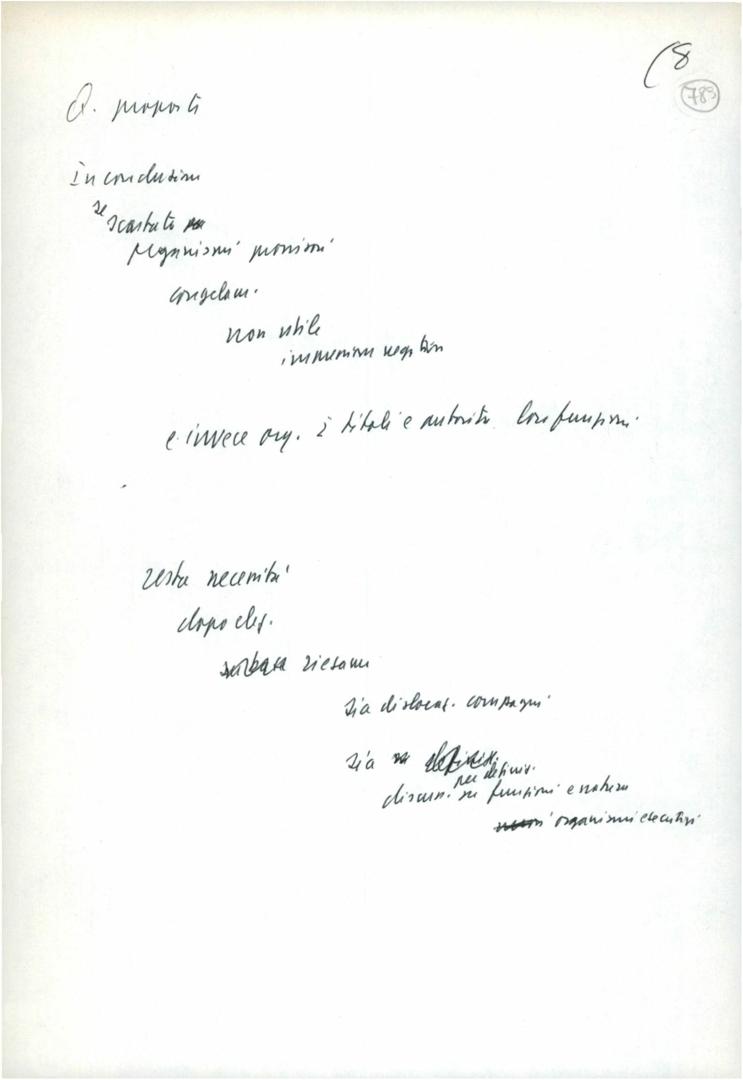 (8
789
Q. proposti
In conclusione
se
scartato
organismi provvisori
congelam.
non utile
impressione negativa
e invece org. è titoli e autorità loro funzioni
resta necessità
dopo elez.
riesame
sia dislocaz. compagni
sia
per definiz.
discuss. su funzioni e natura
organismi esecutivi